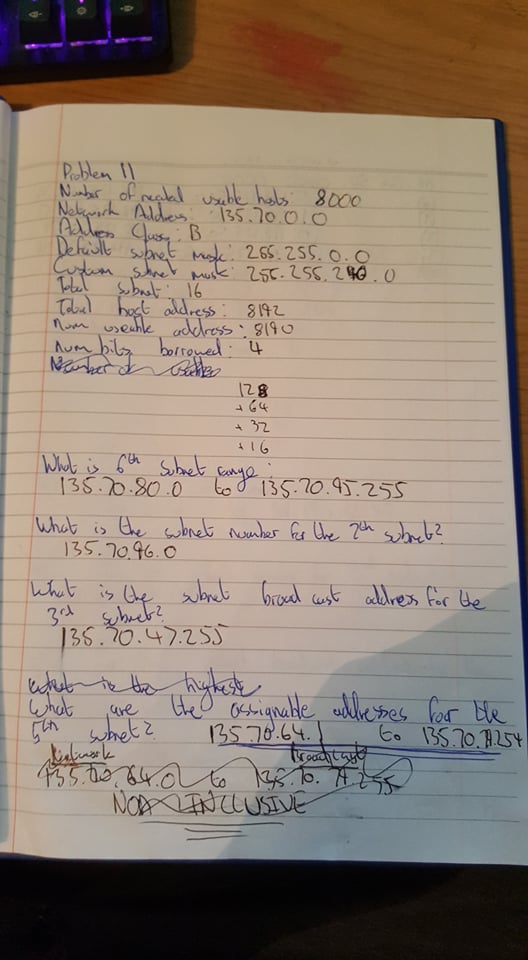 Problem 11
Number of needed usable hosts: 8000
Network Address: 135.70.0.0
Address Class: B
Default subnet mask: 255.255.0.0
Custom subnet mask: 255.255.240.0
Total subnet: 16
Total host address: 8192
num useable address: 8190
num bits borrowed: 4
Number of usable
128
+ 64
+ 32
+ 16
What is 6th subnet range:
135.70.80.0 to 135.70.95.255
What is the subnet number for the 7th subnet?
135.70.96.0
What is the subnet broad cast address for the
3rd subnet?
135.70.47.255
what is the highest
What are the assignable addresses for the
5th subnet? 135.70.64.1 to 135.70.79.254
Network Broadcast
135.70.64.0 to 135.70.79.255
NON INCLUSIVE